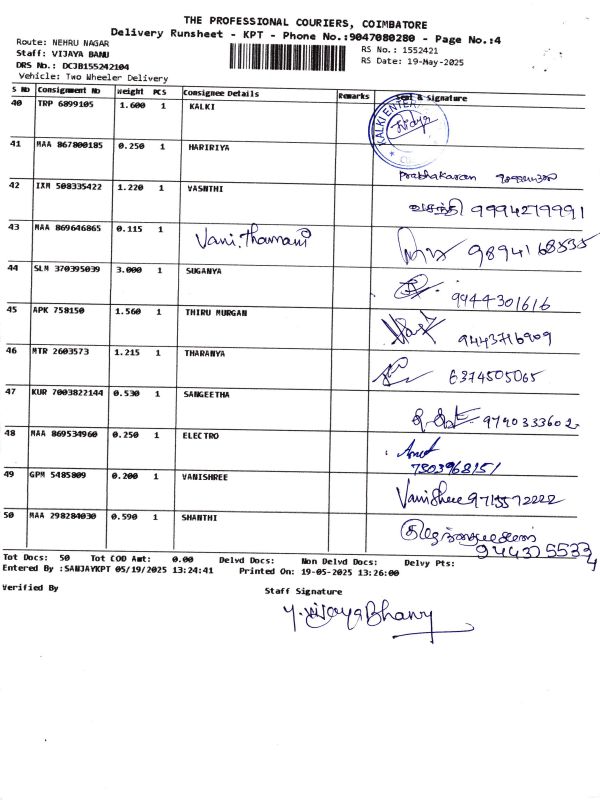 THE PROFESSIONAL COURIERS, COIMBATORE
Delivery Runsheet - KPT - Phone No.:9047080280 - Page No.:4
Route: NEHRU NAGAR
Staff: VIJAYA BANU
RS No.: 1552421
DRS No.: DCJB155242104
RS Date: 19-May-2025
Vehicle: Two Wheeler Delivery
S No Consignment No Weight PCS Consignee Details Remarks Seal & Signature
40 TRP 6899105 1.600 1 KALKI
KALKI ENTER
Vidya
41 MAA 867800185 0.250 1 HARIRIYA
Prabhakaran
42 IXM 508335422 1.220 1 VASNTHI
வசந்தி 9994279991
43 MAA 869646865 0.115 1 Vani.Thamani
9894168535
44 SLM 370395039 3.000 1 SUGANYA
9944301616
45 APK 758150 1.560 1 THIRU MURGAN
9443716909
46 MTR 2603573 1.215 1 THARANYA
6374505065
47 KUR 7003822144 0.530 1 SANGEETHA
9790333602
48 MAA 869534960 0.250 1 ELECTRO
7803968151
49 GPM 5485809 0.200 1 VANISHREE
Vanishree 9715572222
50 MAA 298284030 0.590 1 SHANTHI
9443755334
Tot Docs: 50 Tot COD Amt: 0.00 Delvd Docs: Non Delvd Docs: Delvy Pts:
Entered By :SANJAYKPT 05/19/2025 13:24:41 Printed On: 19-05-2025 13:26:00
Verified By Staff Signature
Y. Vijaya Bhanu